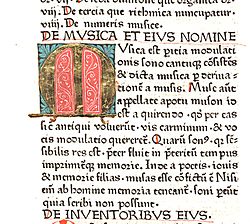 viij. De tercia que rithmica nuncupatur
viiij. De numeris musice.
DE MVSICA ET EIVS NOMINE
MUsica est pericia modulationis
sono cantuq; consistēs
& dicta musica p deriuatione
a musis. Muse aut
appellate apotu muson id
est a querendo . q per eas
sic antiqui voluerūt . vis carminum & vocis
modulatio quereret. Quarū son9 . q sēsibilis
res est . pter fluit in pteritū tempus
imprimitq; memorie. Inde a poetis . iouis
& memorie filias . musas esse cōfictū ē. Nisi
eni ab homine memoria teneant . soni pereunt
quia scribi non possunt.
DE INVENTORIBVS EIVS.